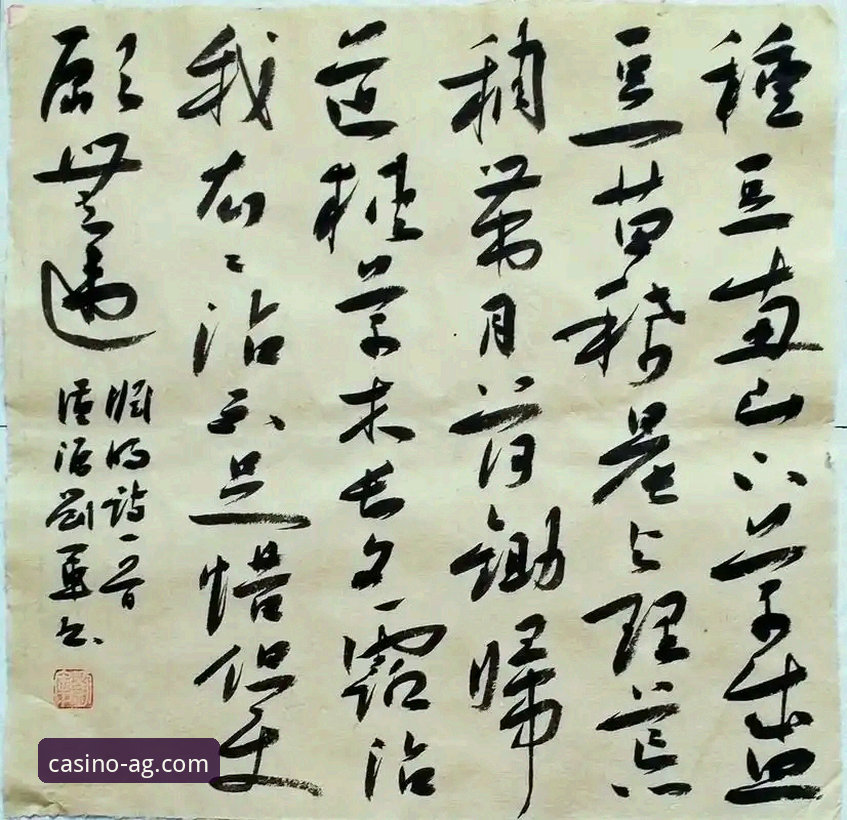 種豆南山下草盛
豆苗稀晨興理荒
穢帶月荷鋤歸
道狹草木長夕露沾
我衣々沾不足惜但使
願無違
淵明詩一首
劉軍書
casino-ag.com